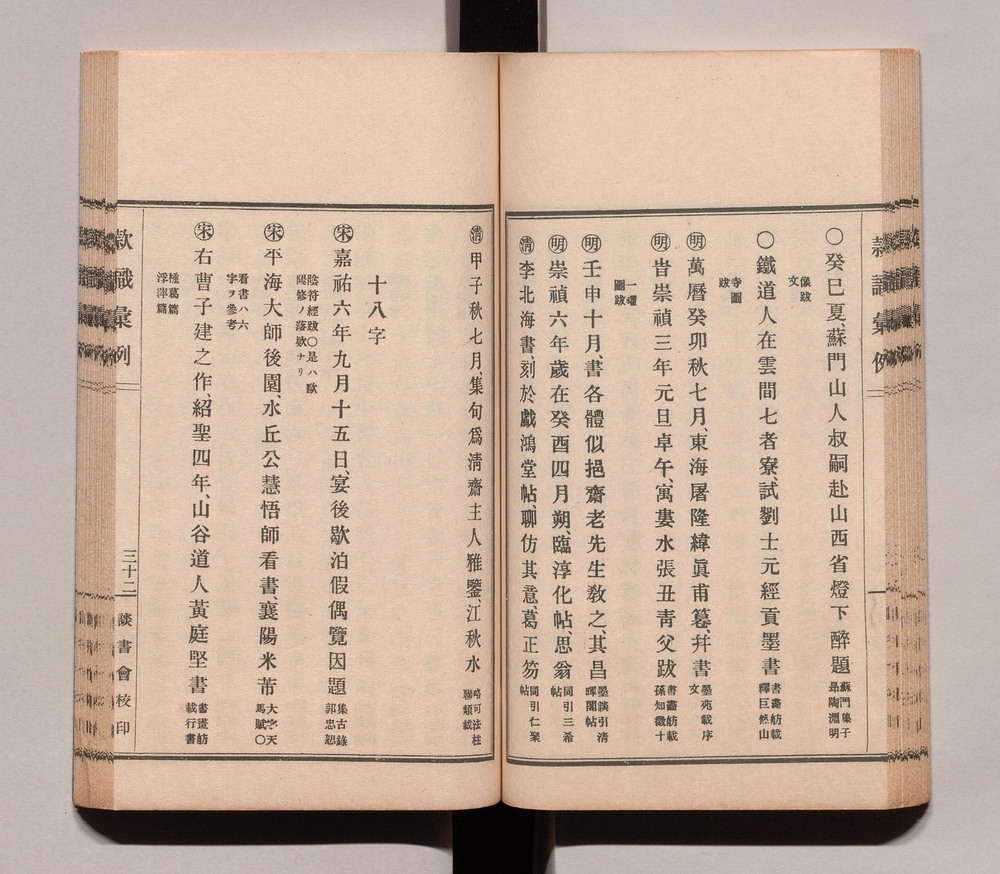 〇癸巳夏、蘇門山人叔嗣赴山西省燈下醉題蘇門集子昻陶淵明
像跋文
〇鐵道人在雲間七者寮、試劉士元經貢墨書書畵舫載釋巨然山
寺圖跋
㊔萬曆癸卯秋七月、東海屠隆緯眞甫篹、幷書墨苑載序文
明旹崇禎三年元旦卓午、寓婁水張丑靑父跋書畵舫載孫知微十
一曜圖跋
明壬申十月、書各體似挹齋老先生敎之、其昌墨談引淸暉閣帖
明崇禎六年歲在癸酉四月朔、臨淳化帖、思翁同引三希帖
淸李北海書、刻於戲鴻堂帖、聊仿其意、葛正笏同引仁聚帖
淸甲子秋七月、集句爲淸齋主人雅鑒、江秋水略可法柱聯類載
十八字
宋嘉祐六年九月十五日、宴後歇泊假偶覽因題集古錄郭忠恕
陰符經跋〇是ハ歐陽修ノ落欵ナリ
宋平海大師後園、水丘公慧悟師看書、襄陽米芾大字天馬賦〇
看書ハ六字ヲ參考
宋右曹子建之作、紹聖四年、山谷道人黃庭堅書書畫舫載行書
種葛篇浮萍篇
款識彙例
三十二
談書會校印